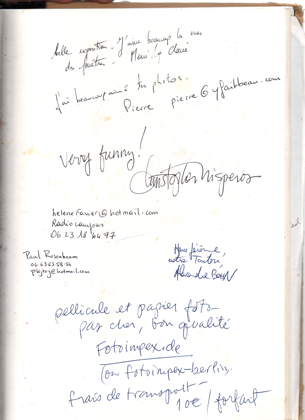 belle exposition - J'aime beaucoup la
des - Merci
j'ai beaucoup aimé tes photos.
Pierre pierre@yfaitbeau.com
Very funny!
Christopher Nisperos
helenefavier@hotmail.com
Radio campus
06 23 18 44 77
Paul Rosenbaum
hotmail.com
pellicule et papier foto-
pas cher, bon qualité
Fotoimpex.de
ou fotoimpex-berlin.
frais de transport -
10€ / forfait